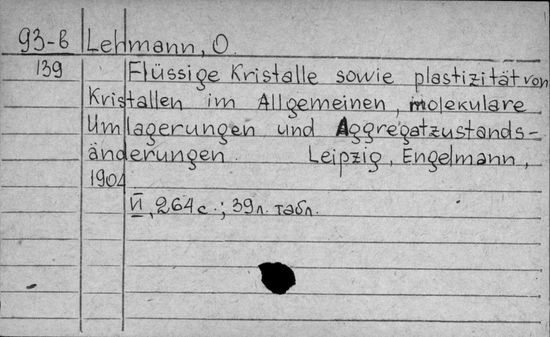 93-в Lehmann, O.
139 Flüssige Kristalle sowie plastizität von
Kristallen im Allgemeinen, molekulare
Umlagerungen und Aggregatzustands-
änderungen. Leipzig, Engelmann,
1904
VI, 264 с.; 39 л. табл.